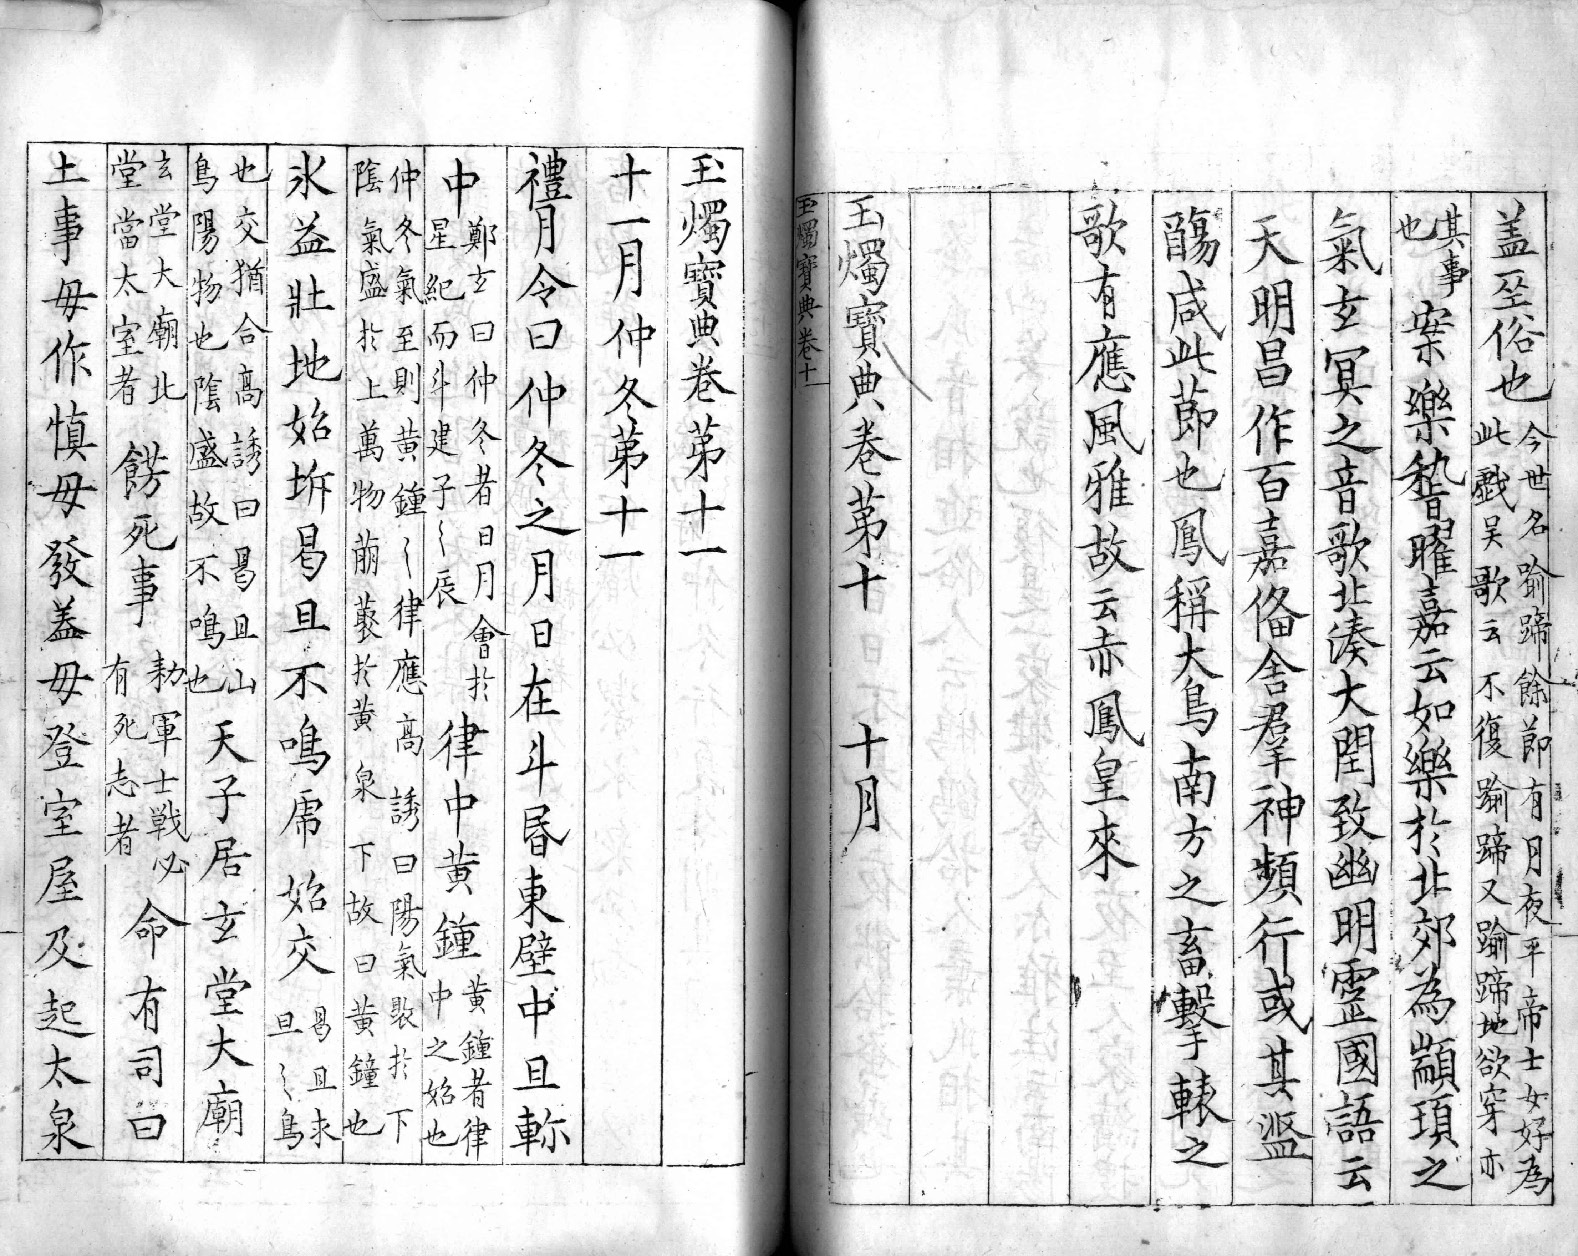 盖巫俗也今世名踰蹄餘節有月夜平帝士女好為
此戲吴歌云不復踰蹄又踰蹄地欲穿亦
其事
也案樂嵇曜嘉云如樂於北郊為顓頊之
氣玄冥之音歌北湊大閏致幽明靈國語云
天明昌作百嘉俻舍羣神頻行或其盜
觴咸此莭也鳳稱大鳥南方之畜擊轅之
歌有應風雅故云赤鳳皇來
玉燭寶典卷第十 十月
玉燭寶典卷十
玉燭寶典卷第十一
十一月仲冬第十一
禮月令曰仲冬之月日在斗昬東壁中旦軫
中鄭玄曰仲冬者日月會於
星紀而斗建子〻辰律中黄鍾黄鍾者律
中之始也
仲冬氣至則黄鍾〻律應高誘曰陽氣聚於下
陰氣盛於上萬物萠藂於黄泉下故曰黄鐘也
氷益壯地始坼曷旦不鳴虎始交曷旦求
旦〻鳥
也交猶合高誘曰曷旦山
鳥陽物也陰盛故不鳴也天子居玄堂大廟
玄堂大廟北
堂當太室者餝死事勑軍士戰必
有死志者命有司曰
土事毋作慎毋發盖毋登室屋及起太泉